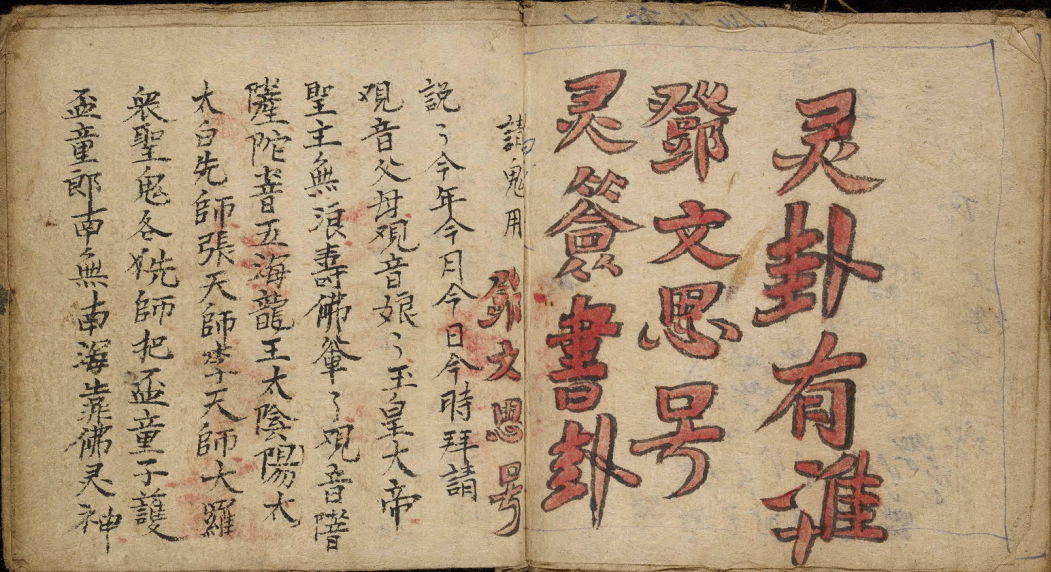 灵卦有准
鄧文思号
灵簽書卦
請鬼用
鄧文思号
説々今年今月今日今時拜請
观音父母观音娘々玉皇大帝
聖主無浪壽佛爺々观音
陀音五海龍王太陰陽太
太白先師張天師李天師大羅
衆聖鬼各先師把盃童子護
盃童郎南無南海靠佛灵神